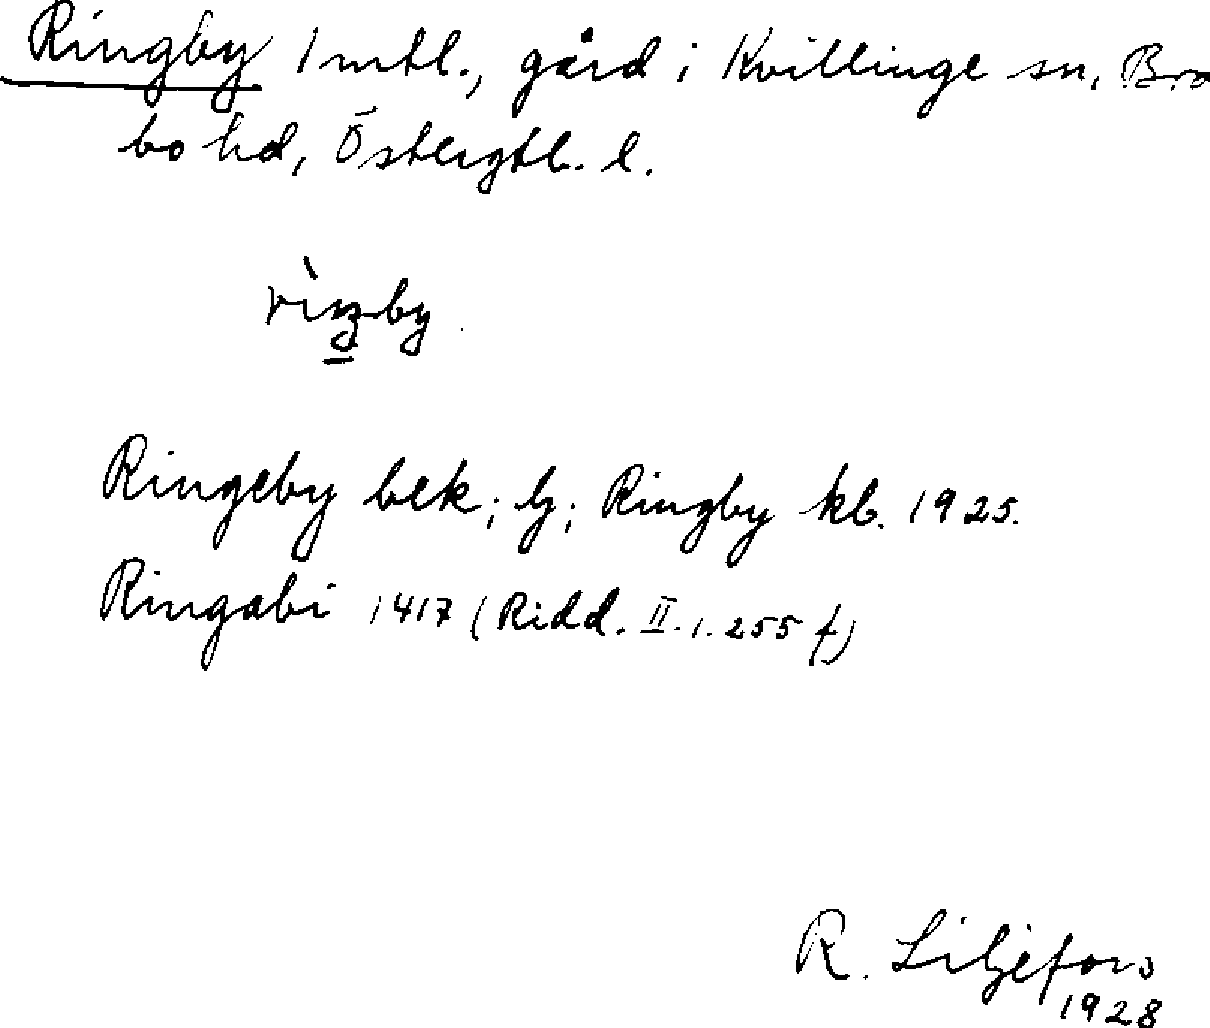 Ringby 1 mtl., gård i Kvillinge sn, Bro
bo hd, Östergtl. l.
rìŋby
Ringeby bek; lj; Ringby kb. 1925.
Ringabi 1417 (Ridd. II. 1. 255 f)
R. Liljefors
1928